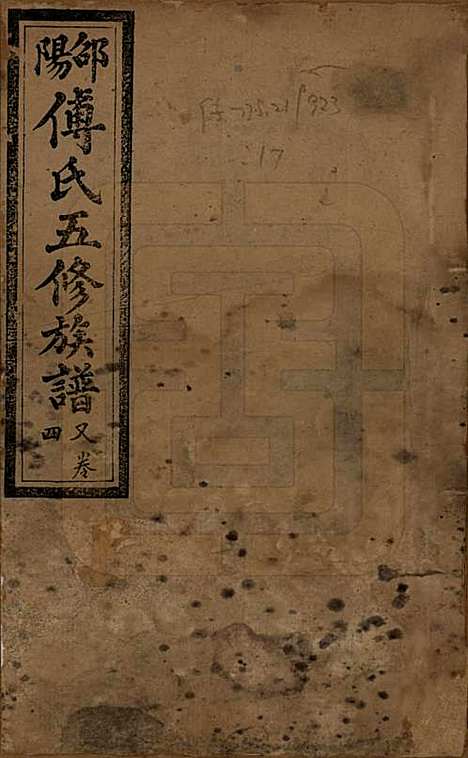 邵陽
傅氏五修族譜
又卷四
17